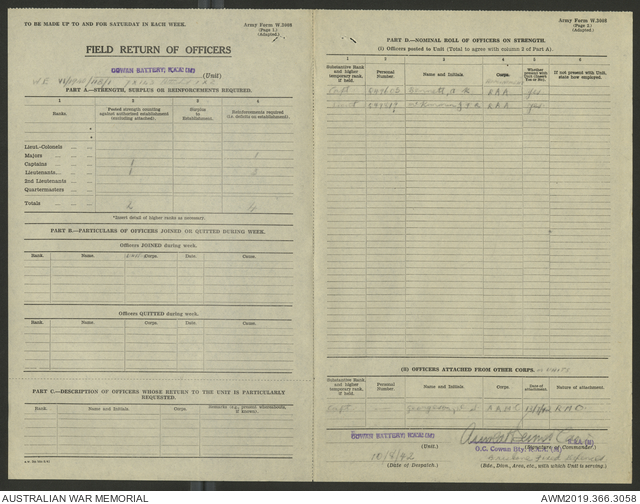 TO BE MADE UP TO AND FOR SATURDAY IN EACH WEEK.
Army Form W.3008
(Page 1)
(Adapted.)
FIELD RETURN OF OFFICERS
COWEN BATTERY, R.A.A. (M)
(Unit)
PART A.—STRENGTH, SURPLUS OR REINFORCEMENTS REQUIRED.
1 2 3 4
Ranks.
*Posted strength counting against authorised establishment (excluding attached).
Surplus to Establishment.
Reinforcements required (i.e. deficits on establishment).
Lieut.-Colonels
Majors 1
Captains 1
Lieutenants 1
2nd Lieutenants
Quartermasters
Totals 2
*Insert detail of higher ranks as necessary.
PART B.—PARTICULARS OF OFFICERS JOINED OR QUITTED DURING WEEK.
Officers JOINED during week.
Rank. Name. Corps. Date. Cause.
Officers QUITTED during week.
Rank. Name. Corps. Date. Cause.
PART C.—DESCRIPTION OF OFFICERS WHOSE RETURN TO THE UNIT IS PARTICULARLY REQUESTED.
Rank. Name. Corps. Remarks (e.g., present whereabouts, if known).
Army Form W.3008
(Page 2)
(Adapted.)
PART D.—NOMINAL ROLL OF OFFICERS ON STRENGTH.
(1) Officers posted to Unit (Total to agree with column 2 of Part A).
1 2 3 4 5 6
Substantive Rank and higher temporary rank, if held.
Personal Number.
Name and Initials.
Corps.
Whether present with Unit (Insert Yes or No).
If not present with Unit, state how employed.
Capt Bennett RAA Yes
RAA Yes
(2) OFFICERS ATTACHED FROM OTHER CORPS. or UNITS
Substantive Rank and higher temporary rank, if held.
Personal Number.
Name and Initials.
Corps.
Date of attachment.
Nature of attachment.
Capt AAMC RMO
COWEN BATTERY, R.A.A. (M)
(Unit.)
R.A.A. (M)
(Signature of Commander.)
O.C. Cowen Bty. R.A.A. (M)
10/8/42
(Date of Despatch.)
(Bde., Divn., Area, etc., with which Unit is serving.)
AUSTRALIAN WAR MEMORIAL
AWM2019.366.3058